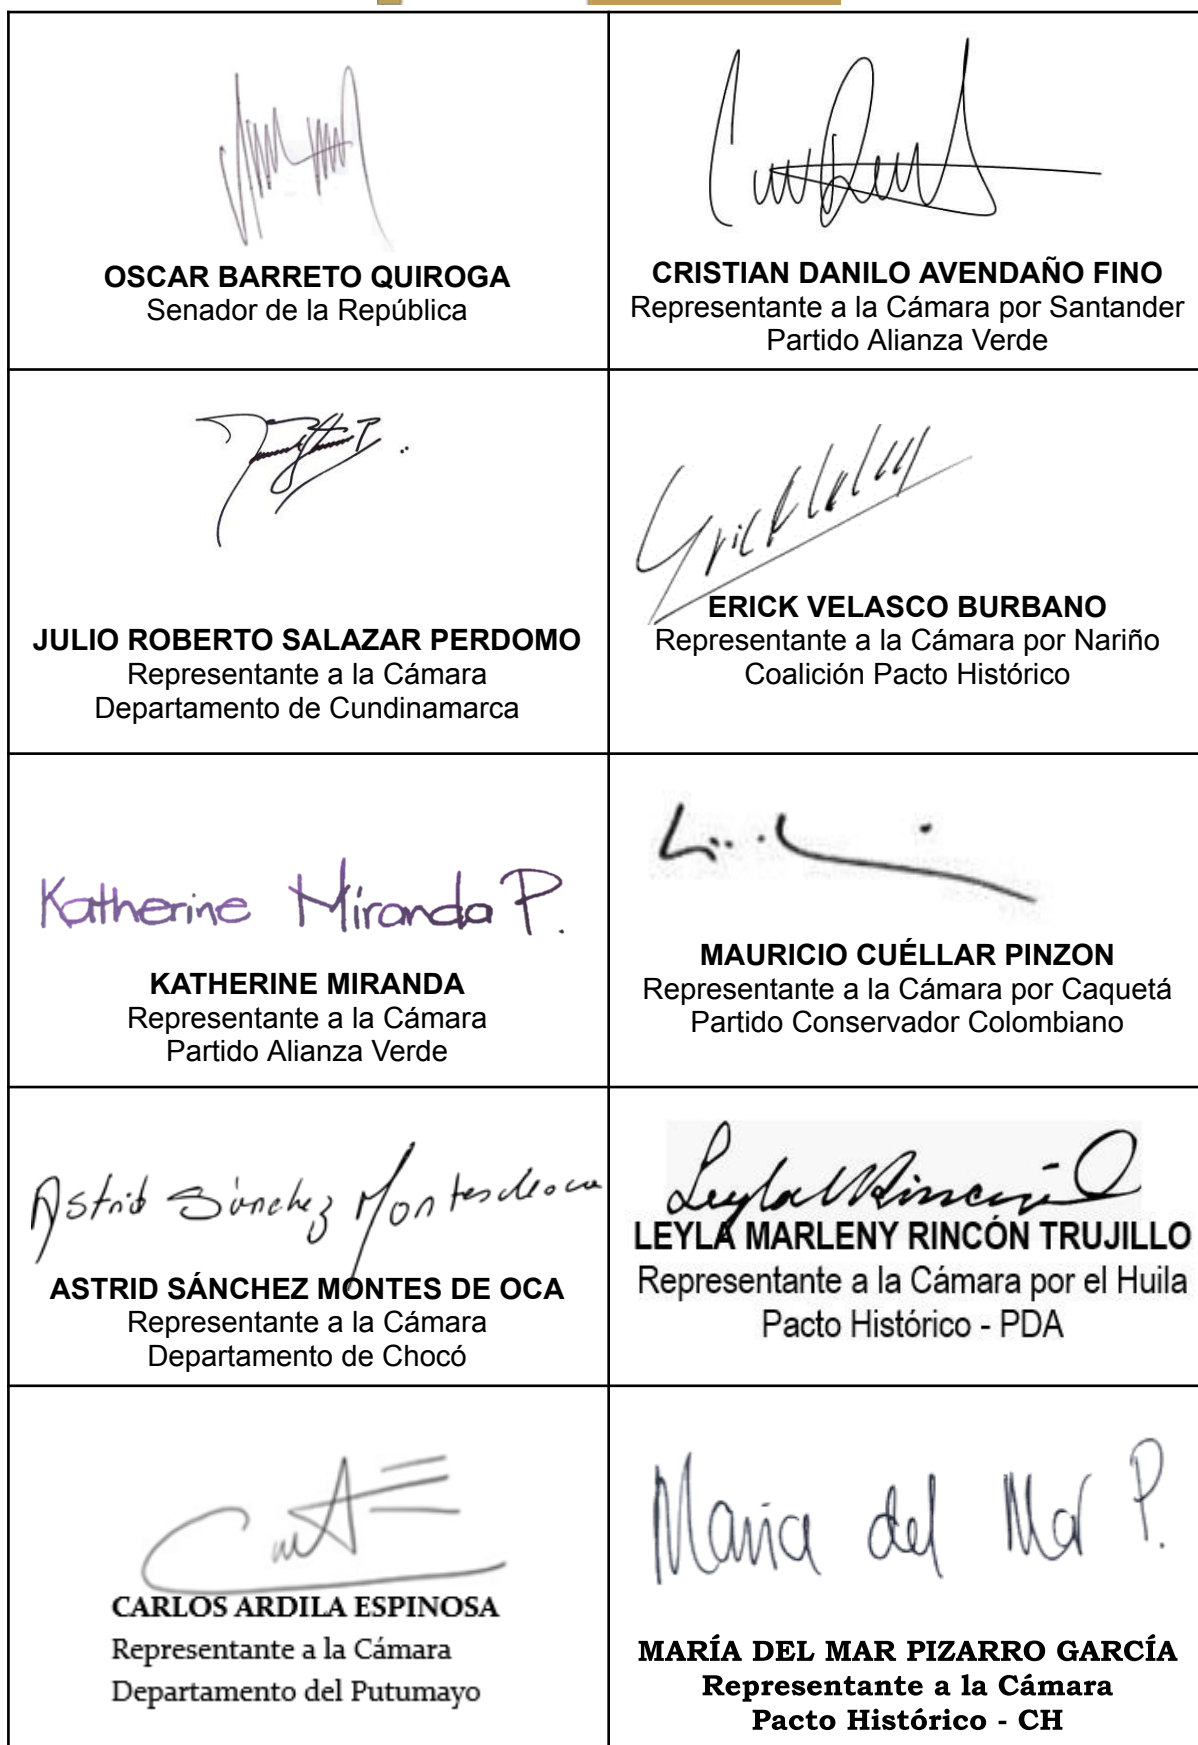 OSCAR BARRETO QUIROGA
Senador de la República
CRISTIAN DANILO AVENDAÑO FINO
Representante a la Cámara por Santander
Partido Alianza Verde
JULIO ROBERTO SALAZAR PERDOMO
Representante a la Cámara
Departamento de Cundinamarca
ERICK VELASCO BURBANO
Representante a la Cámara por Nariño
Coalición Pacto Histórico
Katherine Miranda P.
KATHERINE MIRANDA
Representante a la Cámara
Partido Alianza Verde
MAURICIO CUÉLLAR PINZON
Representante a la Cámara por Caquetá
Partido Conservador Colombiano
Astrid Sánchez Montesdeoca
ASTRID SÁNCHEZ MONTES DE OCA
Representante a la Cámara
Departamento de Chocó
LEYLA MARLENY RINCÓN TRUJILLO
Representante a la Cámara por el Huila
Pacto Histórico - PDA
CARLOS ARDILA ESPINOSA
Representante a la Cámara
Departamento del Putumayo
Maria del Mar P.
MARÍA DEL MAR PIZARRO GARCÍA
Representante a la Cámara
Pacto Histórico - CH